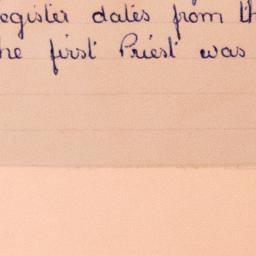 register dates from th
he first Priest was